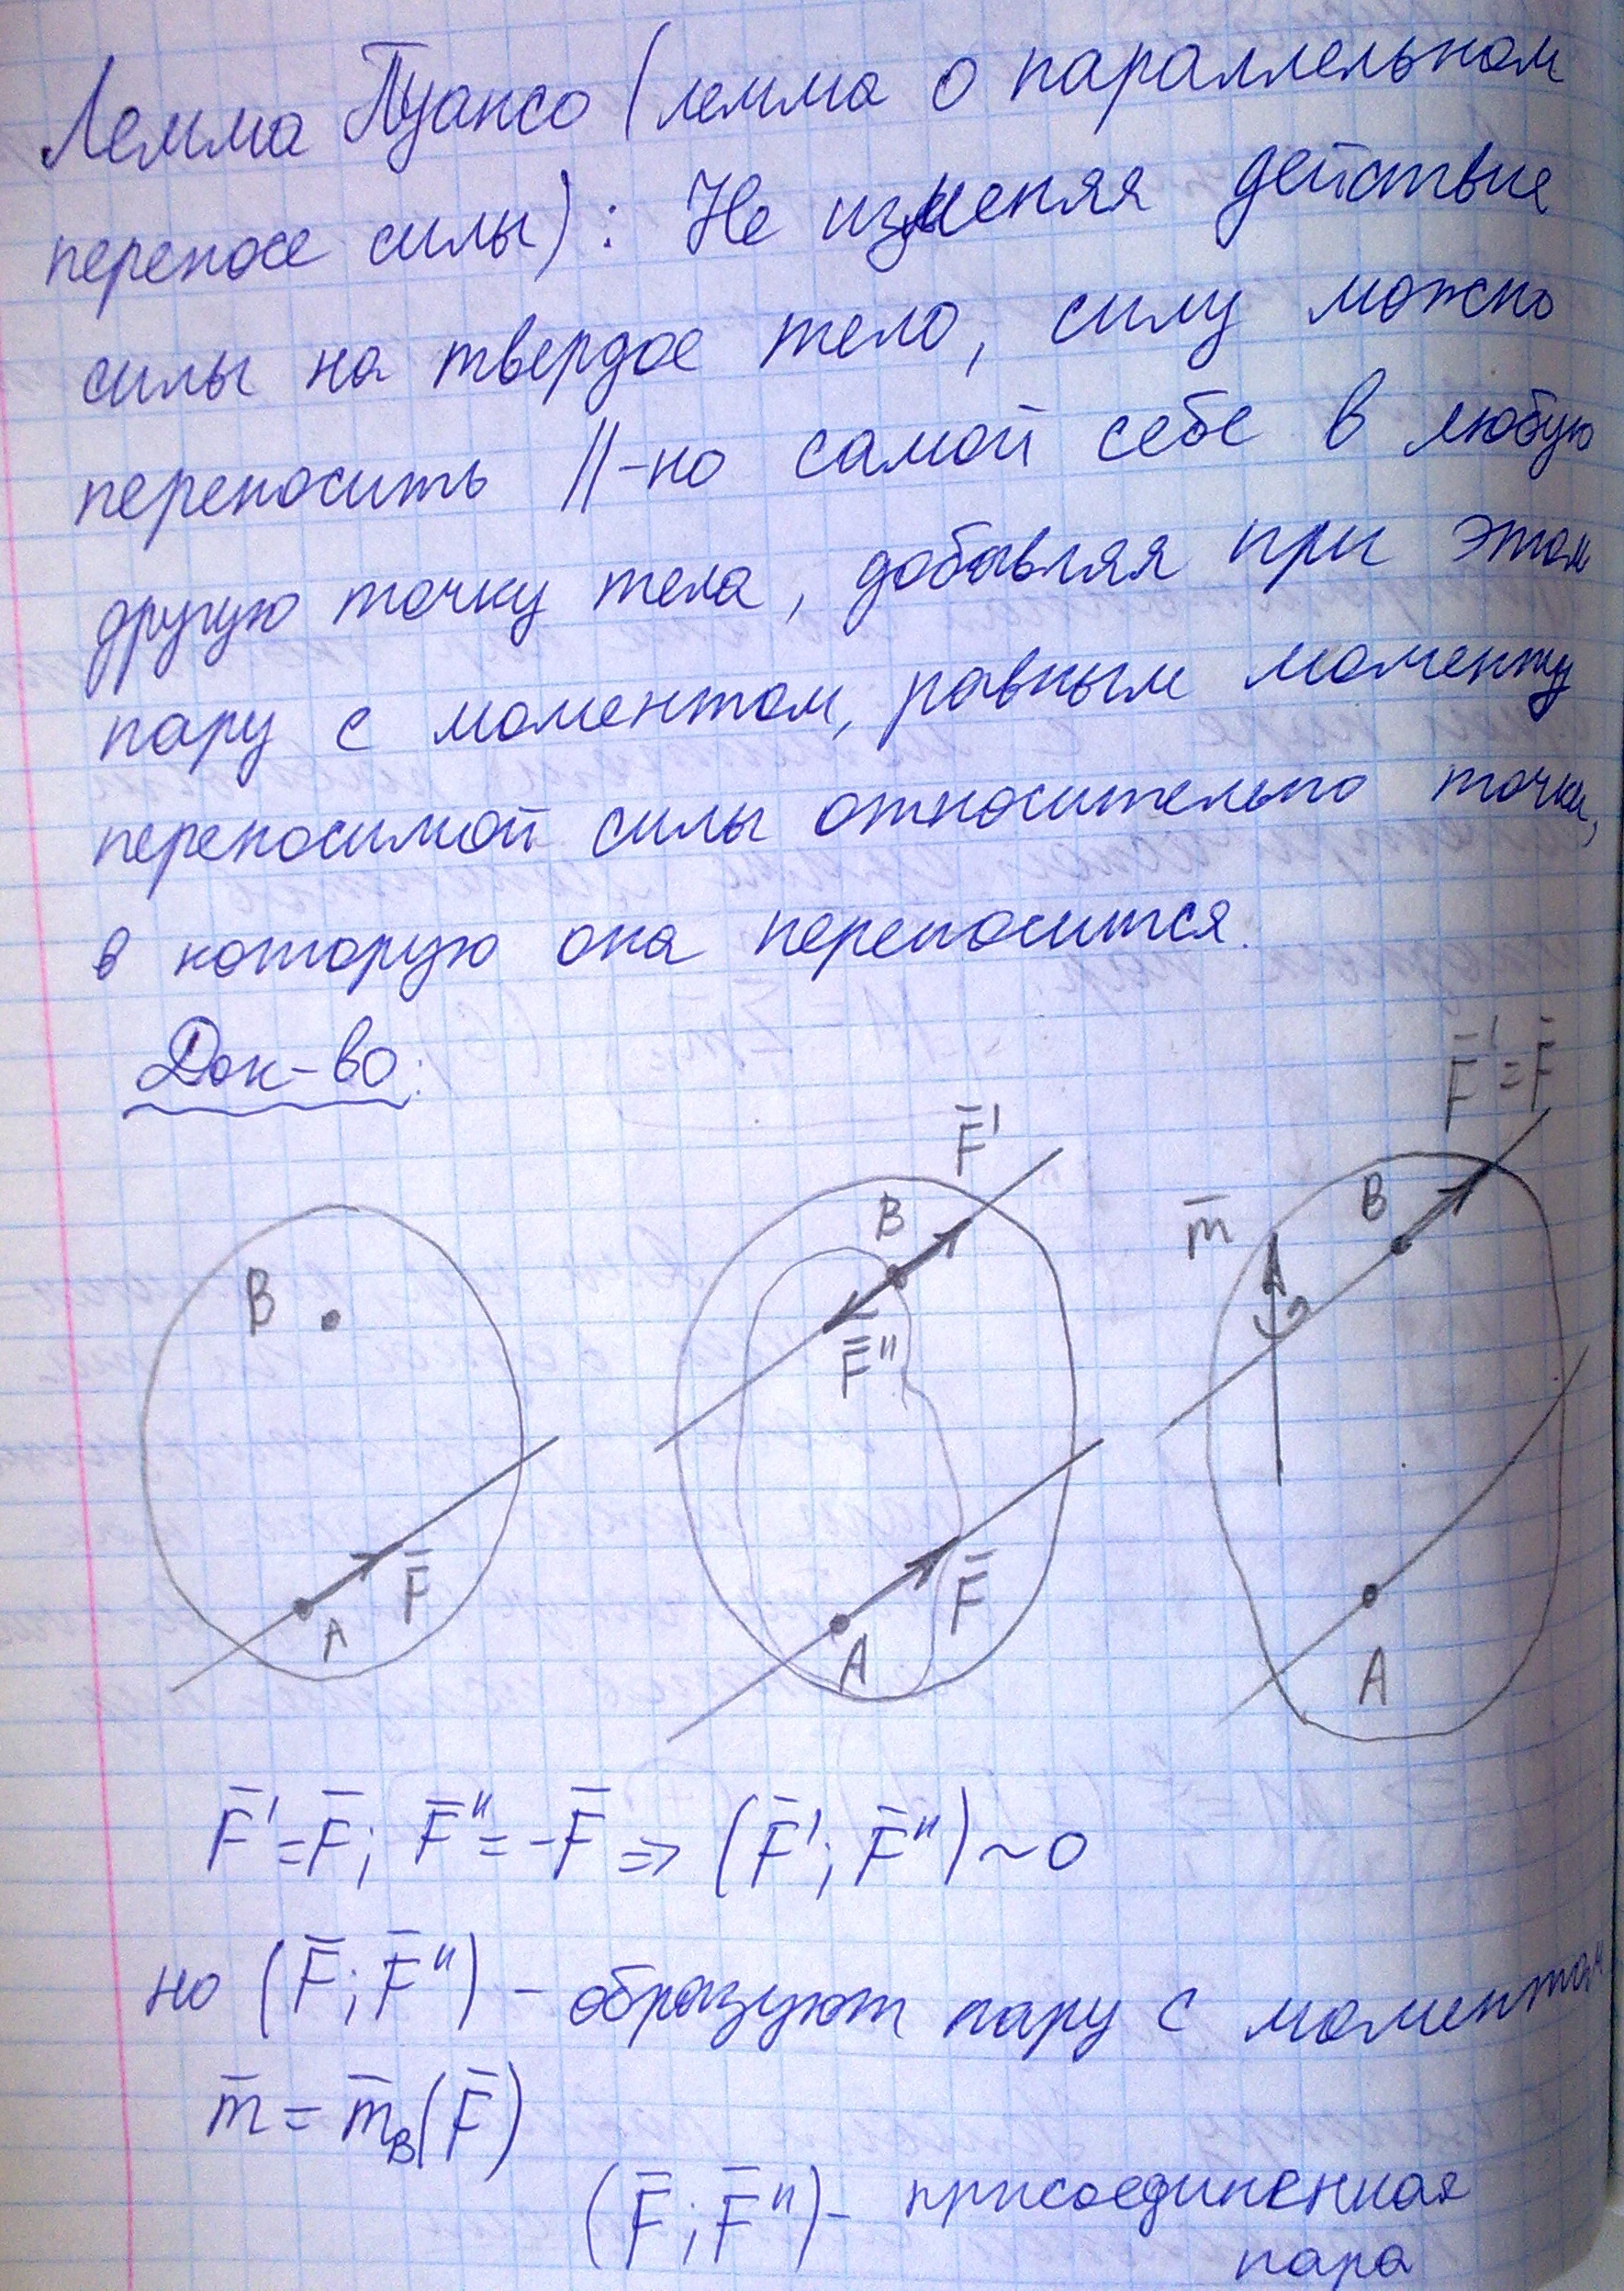 Лемма Пуансо (лемма о параллельном
переносе силы): Не изменяя действие
силы на твердое тело, силу можно
переносить ||-но самой себе в любую
другую точку тела, добавляя при этом
пару с моментом, равным моменту
переносимой силы относительно точки,
в которую она переносится.
Док-во:
B
A
F̄
F̄'
B
F̄''
F̄
A
F̄' = F̄
m̄
B
A
F̄' = F̄; F̄'' = -F̄ => (F̄'; F̄'') ~ 0
но (F̄; F̄'') - образуют пару с моментом
m̄ = m̄_B(F̄)
(F̄; F̄'') - присоединенная
пара